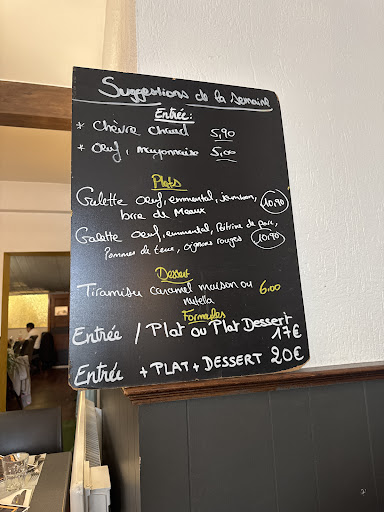 Suggestions de la semaine
Entrée:
* Chèvre chaud 5,90
* Oeuf, mayonnaise 5,00
Plats
Galette oeuf, emmental, jambon,
brie de Meaux 10,90
Galette oeuf, emmental, Poitrine de porc,
Pommes de terre, oignons rouges 10,90
Dessert
Tiramisu caramel maison ou 6,00
Nutella
Formules
Entrée / Plat ou Plat Dessert
17€
Entrée + PLAT + DESSERT 20€